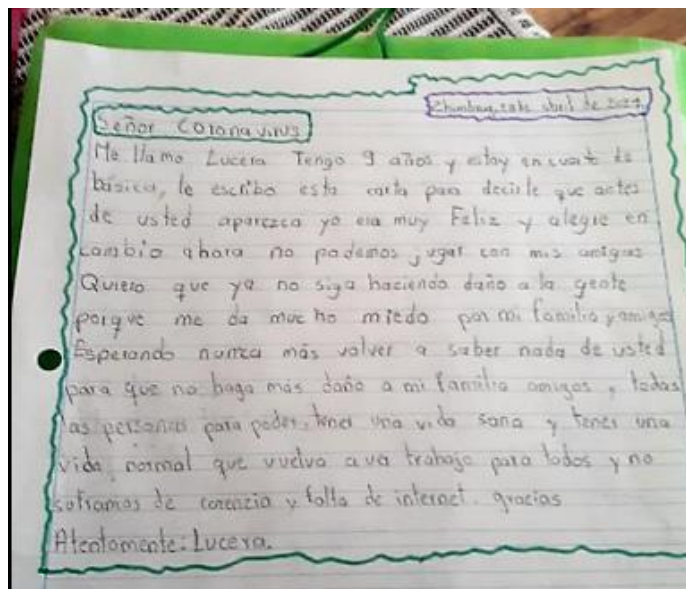 abril de 2021
Señor Coronavirus
Me llamo Lucera Tengo 9 años y estoy en cuarto de
básica, le escribo esta carta para decirle que antes
de usted aparezca yo era muy Feliz y alegre en
cambio ahora no podemos jugar con mis amigas
Quiero que ya no siga haciendo daño a la gente
porque me da mucho miedo por mi familia y amigos
Esperando nunca más volver a saber nada de usted
para que no haga más daño a mi familia amigos, todas
las personas para poder tener una vida sana y tener una
vida normal que vuelva a ver trabajo para todos y no
suframos de carencia y falta de internet. gracias
Atentamente: Lucera.